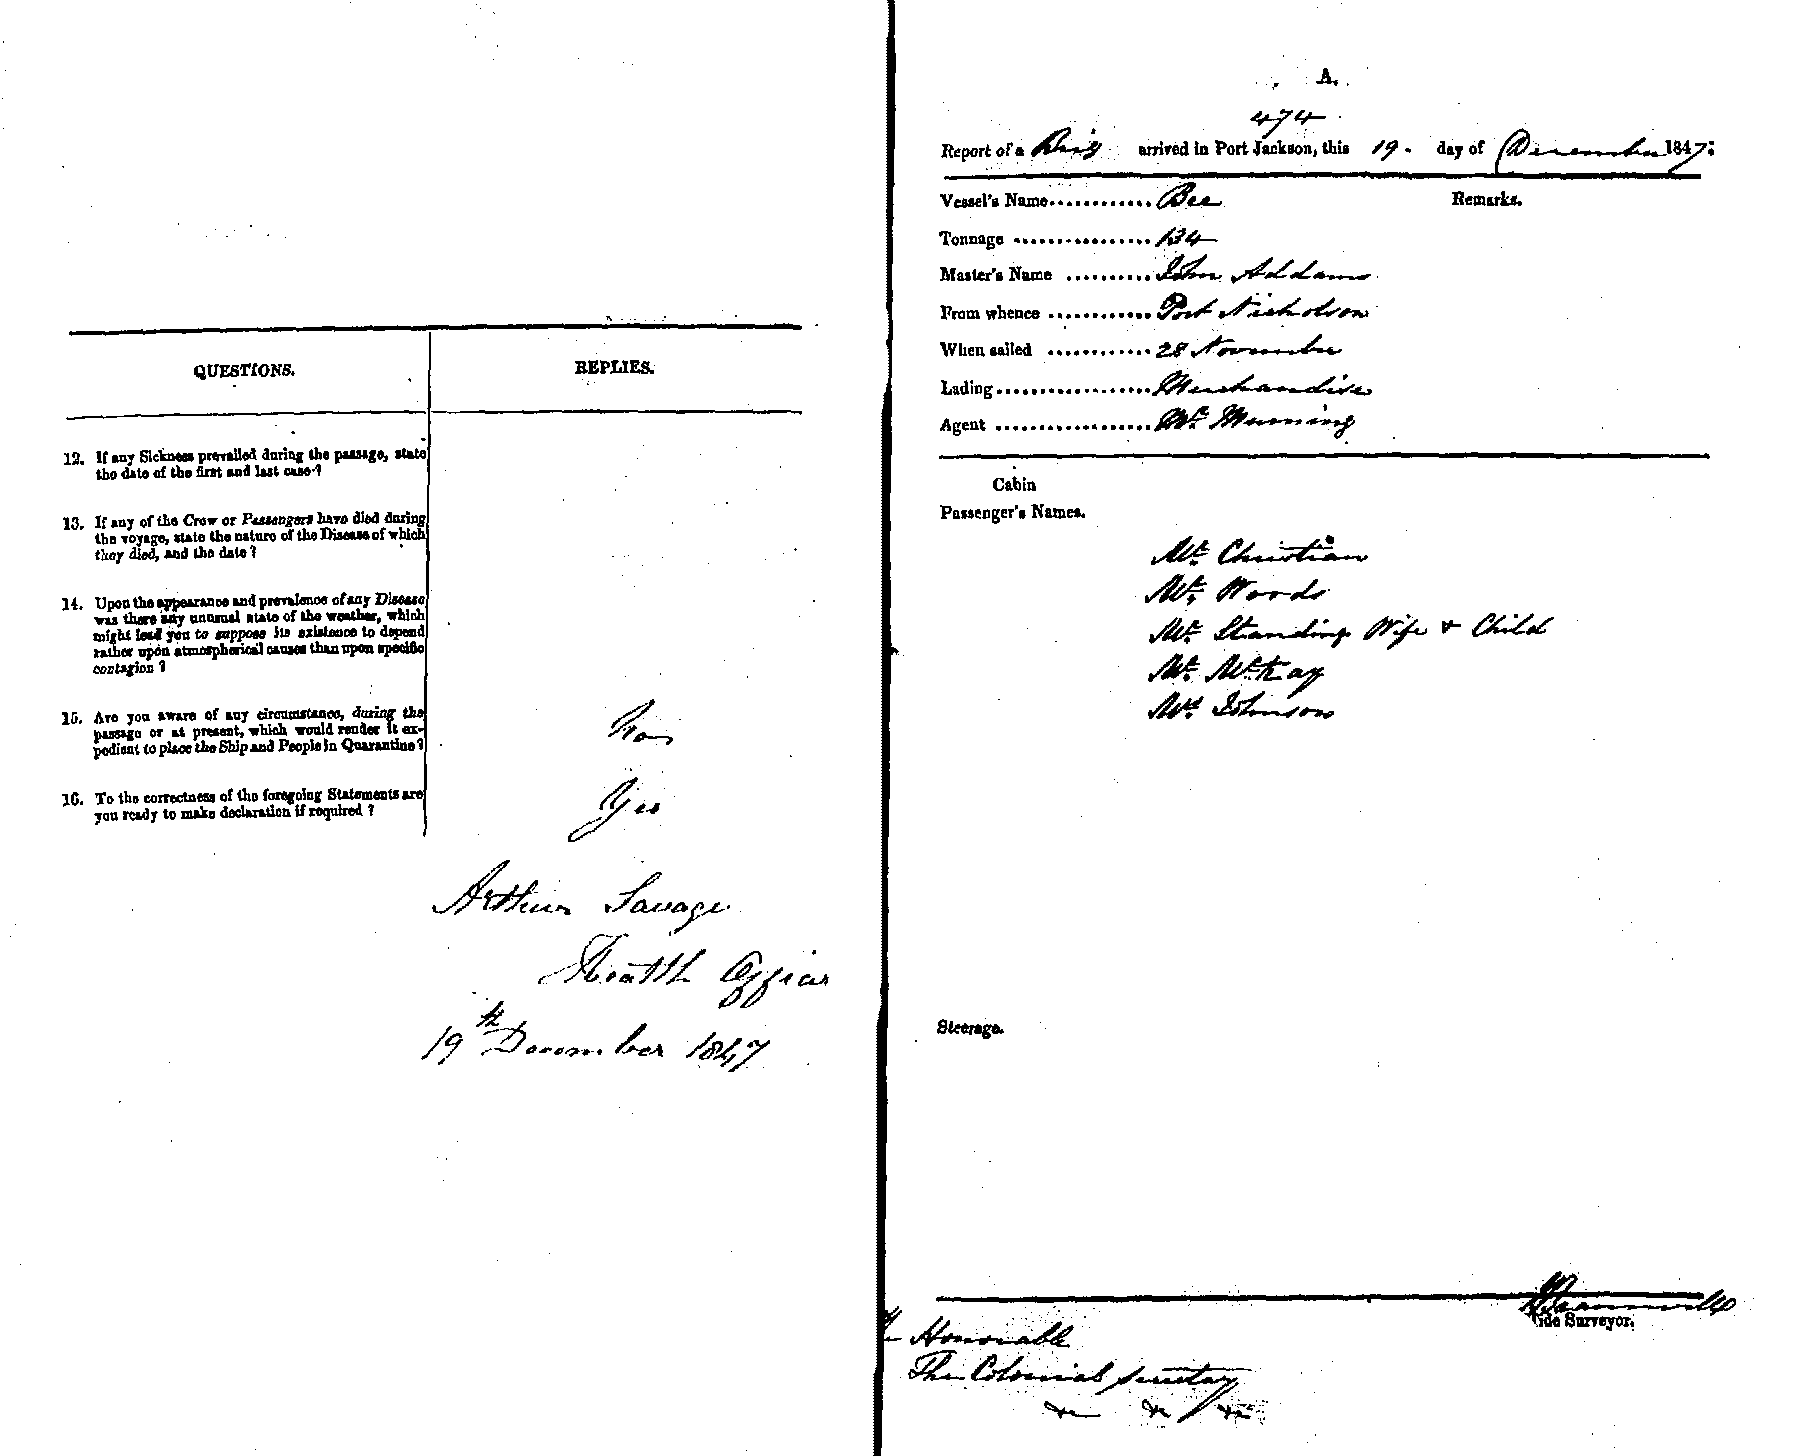 QUESTIONS.
REPLIES.
12. If any Sickness prevailed during the passage, state
the date of the first and last case?
13. If any of the Crew or Passengers have died during
the voyage, state the nature of the Disease of which
they died, and the date?
14. Upon the appearance and prevalence of any Disease
was there any unusual state of the weather, which
might lead you to suppose its existence to depend
rather upon atmospherical causes than upon specific
contagion?
15. Are you aware of any circumstance, during the
passage or at present, which would render it ex-
pedient to place the Ship and People in Quarantine?
No
16. To the correctness of the foregoing Statements are
you ready to make declaration if required?
Yes
Arthur Savage
Health Officer
19th December 1847
A.
474
Report of a Brig arrived in Port Jackson, this 19. day of December 1847:
Vessel's Name............ Bee
Remarks.
Tonnage ................ 134
Master's Name .......... John Addams
From whence ............ Port Nicholson
When sailed ............ 28 November
Lading.................. Merchandise
Agent .................. Mr
Cabin
Passenger's Names.
Mr. Christian
Mr. Woods
Mr. Standing Wife & Child
Mr. McKay
Mrs Johnson
Steerage.
Tide Surveyor.
Honorable
The Colonial Secretary
&c &c &c